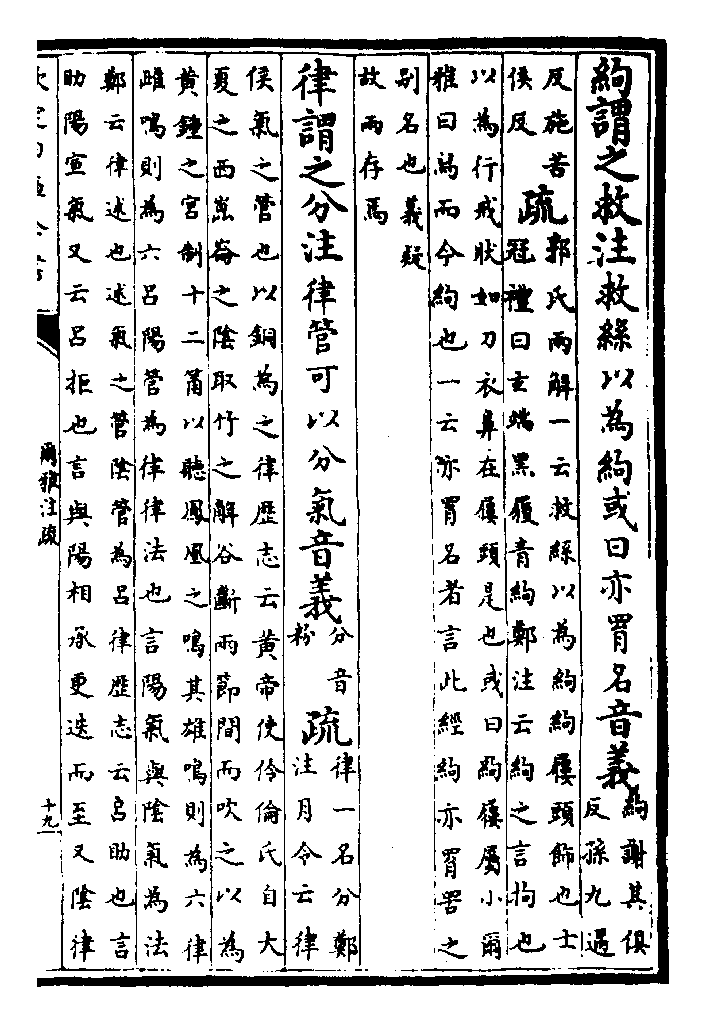 絇謂之救注救絲以為絇或曰亦罥名音義
絇謝其俱
反孫九遇
反施苦
侯反
疏
郭氏兩解一云救絲以為絇絇屨頭飾也士
冠禮曰玄端黑屨青絇鄭注云絇之言拘也
以為行戒狀如刀衣鼻在屨頭是也或曰絇屨屬小爾
雅曰舄而今絇也一云亦罥名者言此經絇亦罥罟之
别名也義疑
故兩存焉
律謂之分注律管可以分氣音義
分音
粉
疏
律一名分鄭
注月令云律
候氣之管也以銅為之律歴志云黄帝使伶倫氏自大
夏之西崑崙之陰取竹之解谷斷兩節間而吹之以為
黄鍾之宫制十二筩以聽鳳凰之鳴其雄鳴則為六律
雌鳴則為六吕陽管為律律法也言陽氣與陰氣為法
鄭云律述也述氣之管陰管為吕律歴志云吕助也言
助陽宣氣又云吕拒也言與陽相承更迭而至又陰律
欽定四庫全書
爾雅注疏
十九